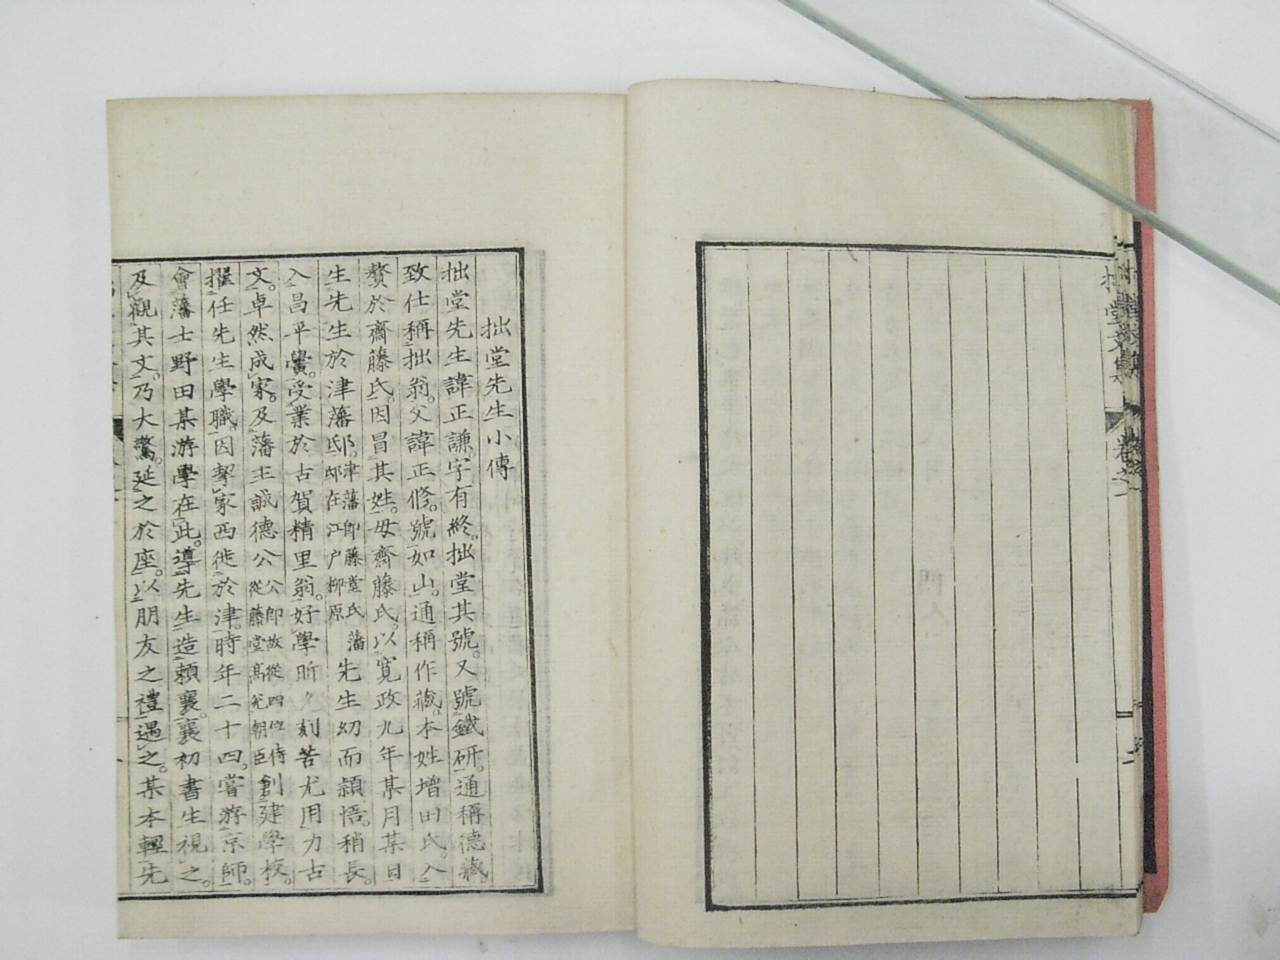 拙堂文集
卷之一
拙堂先生小傳
拙堂先生諱正謙。字有終。拙堂其號。又號鐵研。通稱德藏。
致仕稱拙翁。父諱正修。號如山。通稱作藏。本姓增田氏。入
贅於齋藤氏。因冒其姓。母齋藤氏。以寬政九年某月某日
生先生於津藩邸。津藩即藤堂氏藩邸在江戶柳原先生幼而穎悟。稍長。
入昌平黌。受業於古賀精里翁。好學昕夕刻苦尤用力古
文。卓然成家。及藩主誠德公公即故從四位侍從藤堂高兌朝臣創建學校。
擢任先生學職。因挈家西徙於津。時年二十四。嘗游京師。
會藩士野田某游學在此。導先生造賴襄。襄初書生視之。
及觀其文。乃大驚。延之於座。以朋友之禮遇之。某本輕先